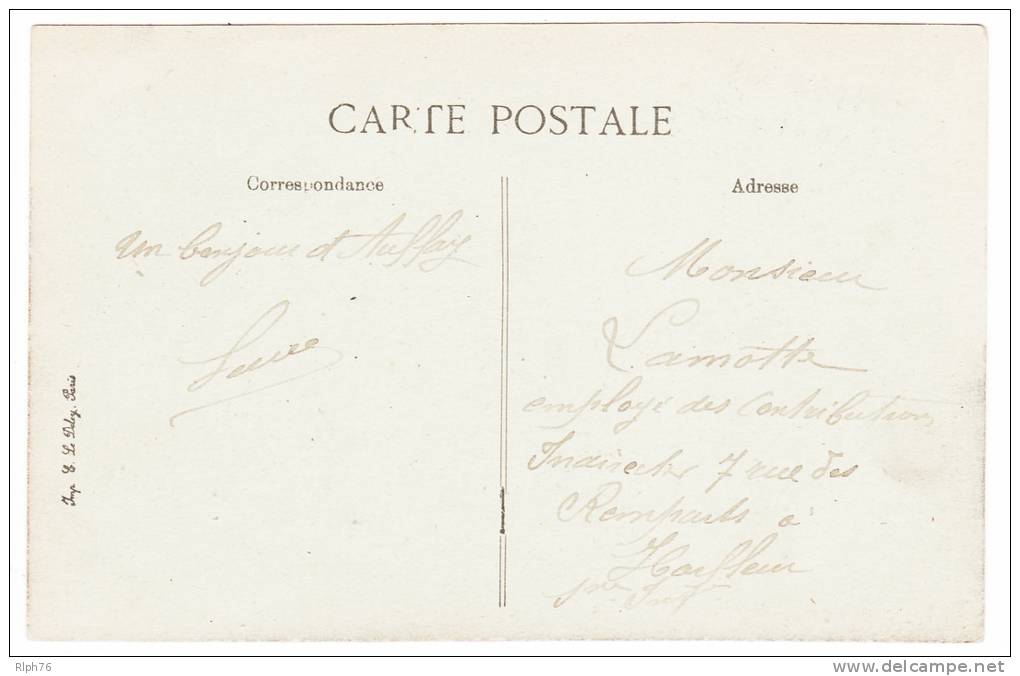 CARTE POSTALE
Correspondance
Adresse
un bonjour d'Auffay
Monsieur
Lamotte
employé des Contributions
Indirectes 7 rue des
Remparts à
Harfleur
Sne Infre
Imp. E. Le Deley, Paris
Rlph76
www.delcampe.net